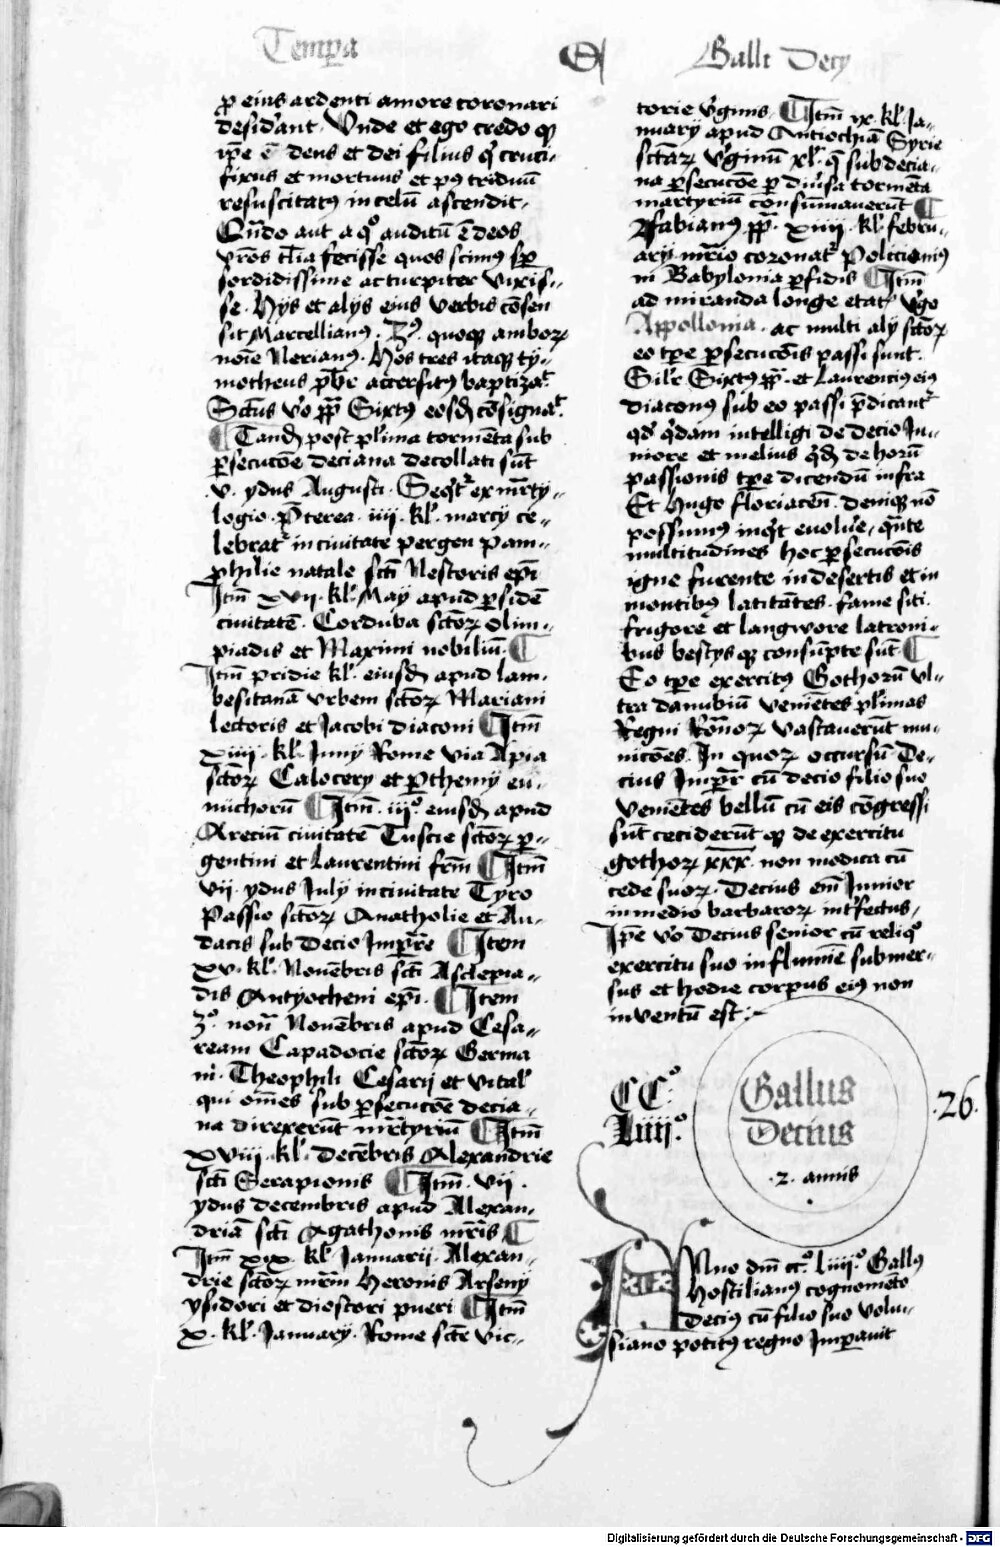 Temp̲a
Galli Decy
p̲ eius ardenti amore coronari
desid'ant. Vnde et ego credo qɜ
ip̄e ē deus et dei filius q' cruci-
fixus et mortuus et p9 triduū
resuscitat9 in celū ascendit.
Qn̄do aut a q° auditū ē deos
vr̄os tl̄ia fecisse quos scim9 sp̲
sordidissime ac turpiter vixis-
se. Hys et alys eius verbis cōsen
sit Marcellian9. 3us quoqɜ amboꝝ
noīe Nerian9. Hos tres itaqɜ ty-
motheus p̄b'r accersit9 baptizat'.
Sct̄us v'o pp̄ Sixt9 eosd̄ cōsignat'.
¶ Tand̄ post pl'ima tormēta sub
p̲secucōe deciana decollati sūt
.v. ydus Augusti. Seq't' ex mr̄ty-
logio. P̄terea .iiii. kl'. marcy ce-
lebrat' in ciuitate pergen pam-
philie natale sct̄i Nestoris ep̄i
Itm̄ xvii. kl'. May apud p̲sidē
ciuitatē. Corduba sct̄oꝝ olim-
piadis et Maximi nobiliū. ¶
Itm̄ pridie kl'. eiusd̄ apud lam-
besitanā vrbem sct̄oꝝ Mariani
lectoris et Jacobi diaconi ¶ Itm̄
xiiii. kl'. Juny Rome via Apia
sct̄oꝝ Calocery et p̲themy eu-
nuchorū ¶ Itm̄ .iii°. eiusd̄ apud
Areciū ciuitatē Tuscie sct̄oꝝ p̲-
gentini et Laurentini frm̄ ¶ Itm̄
vii. ydus July in ciuitate Tyro
Passio sct̄oꝝ Anatholie et Au-
dacis sub Decio Imp̲r̄e ¶ Item
xv. kl'. Nouēbris sct̄i Asclepia-
dis Antyocheni ep̄i. ¶ Item
3°. non̄ Nouēbris apud Cesa-
ream Capadocie sct̄oꝝ Germa
ni. Theophili Cesarij et Vital'
qui om̄es sub p̲secucōe decia-
na direxerūt mr̄tyriū ¶ Itm̄
xviii. kl'. Decēbris Alexandrie
sct̄i Serapionis ¶ Itm̄. vii.
ydus decembris apud Alexan-
driā sct̄i Agathonis mr̄is ¶
Itm̄ xix. kl'. Januarii. Alexan-
drie sct̄oꝝ mr̄m Heronis Arseny
ysidori et dioscori pueri ¶ Itm̄
x. kl'. January. Rome sct̄e Vic-
torie v'ginis. ¶ Itm̄ ix. kl'. Ja-
nuary apud Antiochiā Syrie
sct̄aꝝ v'ginū xl'. q̄ sub decia-
na p̲secucōe p̲ diu'sa tormēta
martyriū consūmauerūt ¶
Fabian9 pp̄. xiiii. kl'. febru-
ary. mr̄io coronat' Policroni9
in Babylonia p̲fidis ¶ Itm̄
ad miranda longe etat' v'go
Appollonia. ac multi aly sct̄oꝝ
eo tp̲e p̲secucōis passi sunt.
Sil'r Sixt9 pp̄. et Laurenci9 ei9
diacon9 sub eo passi p̄dicant'
qd' q'dam intelligi de decio Ju-
niore et melius q'd̄ de horū
passionis tp̲e dicendū infra
Et Hugo floriacen̄. deniqɜ nō
possum9 inq't euolu'e, q̄nte
multitudines hoc p̲secucōis
igne furente in desertis et in
montib9 latitātes. fame siti.
frigore et langwore latroni-
bus bestys qɜ consūpte sūt. ¶
Eo tp̲e exercit9 Gothorū vl-
tra danubiū veniētes pl'imas
Regni Rōnoꝝ vastauerūt mu-
nicōes. In quoꝝ occursū De-
cius Imp̲r̄ cū decio filio suo
veniētes bellū cū eis cōgressi
sūt cecideruт̄ qɜ de exercitu
gothoꝝ xxx. non modica cū
cede suoꝝ. Decius em̄ Junior
in medio barbaroꝝ int'fectus,
Ip̄e v'o Decius senior cū reliq°
exercitu suo in flumīe submer-
sus et hodie corpus ei9 non
inventū est :-
CC°.
Liiii°.
Gallus
Decius
.2. annis
.26.
Anno dn̄i cc°. liiii°. Gallus
Hostilian9 cognomēto
Decius cū filio suo Volu-
siano potit9 regno Imp̲auit